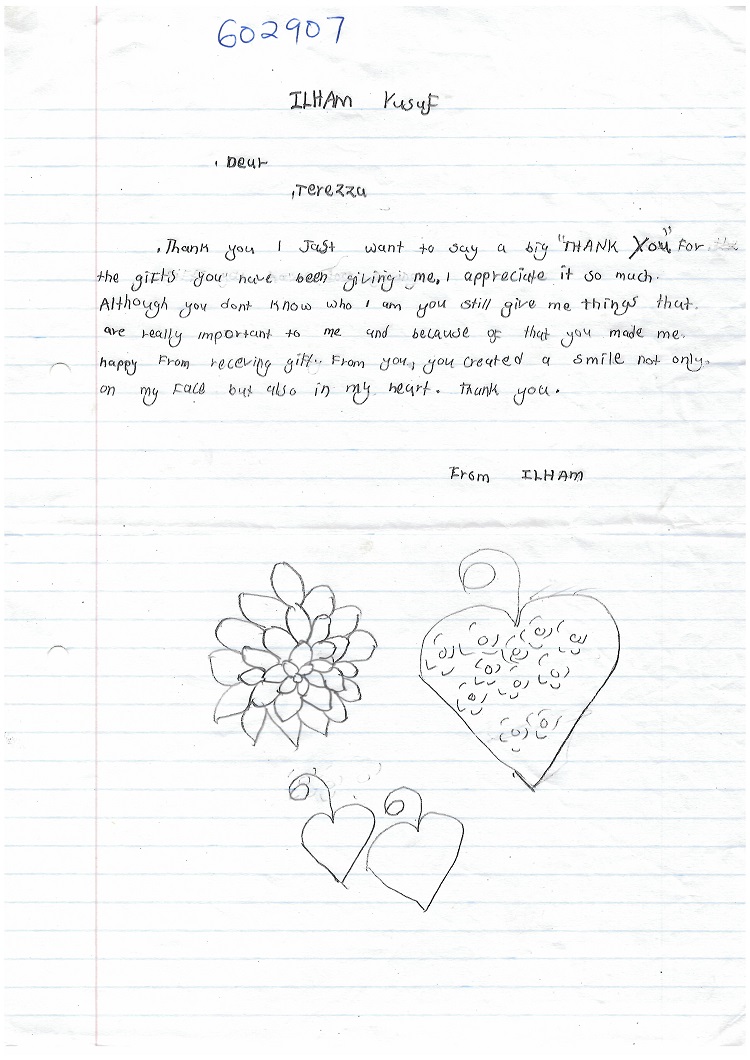 602907
ILHAM Yusuf
. Dear
, Terezza
, Thank you I Just want to say a big "THANK YOU" For
the gifts you have been giving me, I appreciate it so much.
Although you dont know who I am you still give me things that.
are really important to me and because of that you made me.
happy From receving gift.. From you, you created a smile not only.
on my Face but also in my heart. Thank you.
From ILHAM